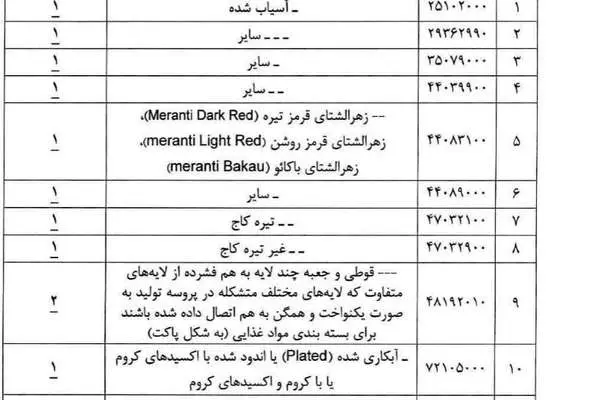 ۱ ۲۵۱۰۲۰۰۰ ـ آسیاب شده ۱
۲ ۲۹۳۶۲۹۹۰ ـ ـ ـ سایر ۱
۳ ۳۵۰۷۹۰۰۰ ـ سایر ۱
۴ ۴۴۰۳۹۹۰۰ ـ ـ سایر ۱
۵ ۴۴۰۸۳۱۰۰ -- زهرالشتای قرمز تیره (Meranti Dark Red)،
زهرالشتای قرمز روشن (meranti Light Red)، ۱
زهرالشتای باکائو (meranti Bakau)
۶ ۴۴۰۸۹۰۰۰ ـ سایر ۱
۷ ۴۷۰۳۲۱۰۰ ـ ـ تیره کاج ۱
۸ ۴۷۰۳۲۹۰۰ ـ ـ غیر تیره کاج ۱
۹ ۴۸۱۹۲۰۱۰ --- قوطی و جعبه چند لایه به هم فشرده از لایه‌های
متفاوت که لایه‌های مختلف متشکله در پروسه تولید به
صورت یکنواخت و همگن به هم اتصال داده شده باشند ۲
برای بسته بندی مواد غذایی (به شکل پاکت)
۱۰ ۷۲۱۰۵۰۰۰ ـ آبکاری شده (Plated) یا اندود شده با اکسیدهای کروم ۱
یا با کروم و اکسیدهای کروم